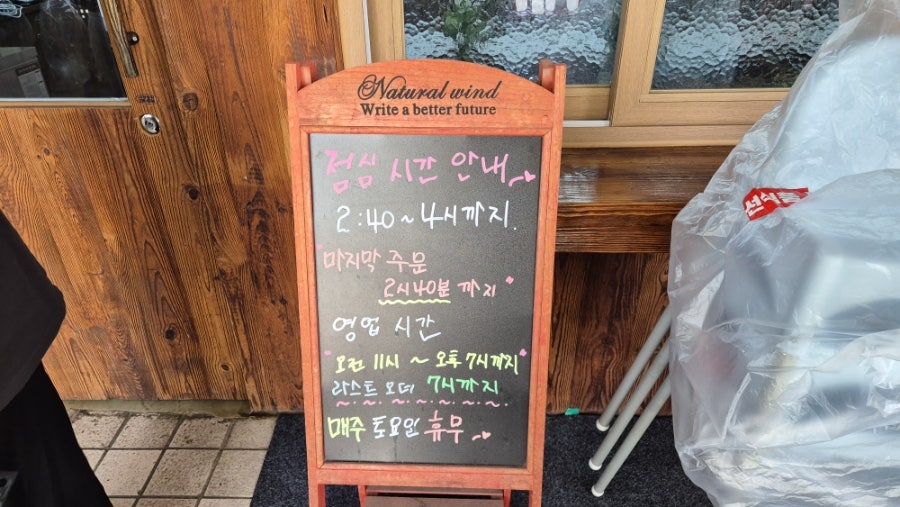 Natural wind
Write a better future
점심 시간 안내
2:40~4시까지.
"마지막 주문
2시40분 까지"
영업 시간
"오전 11시 ~ 오후 7시까지"
라스트 오더 7시까지
매주 토요일 휴무